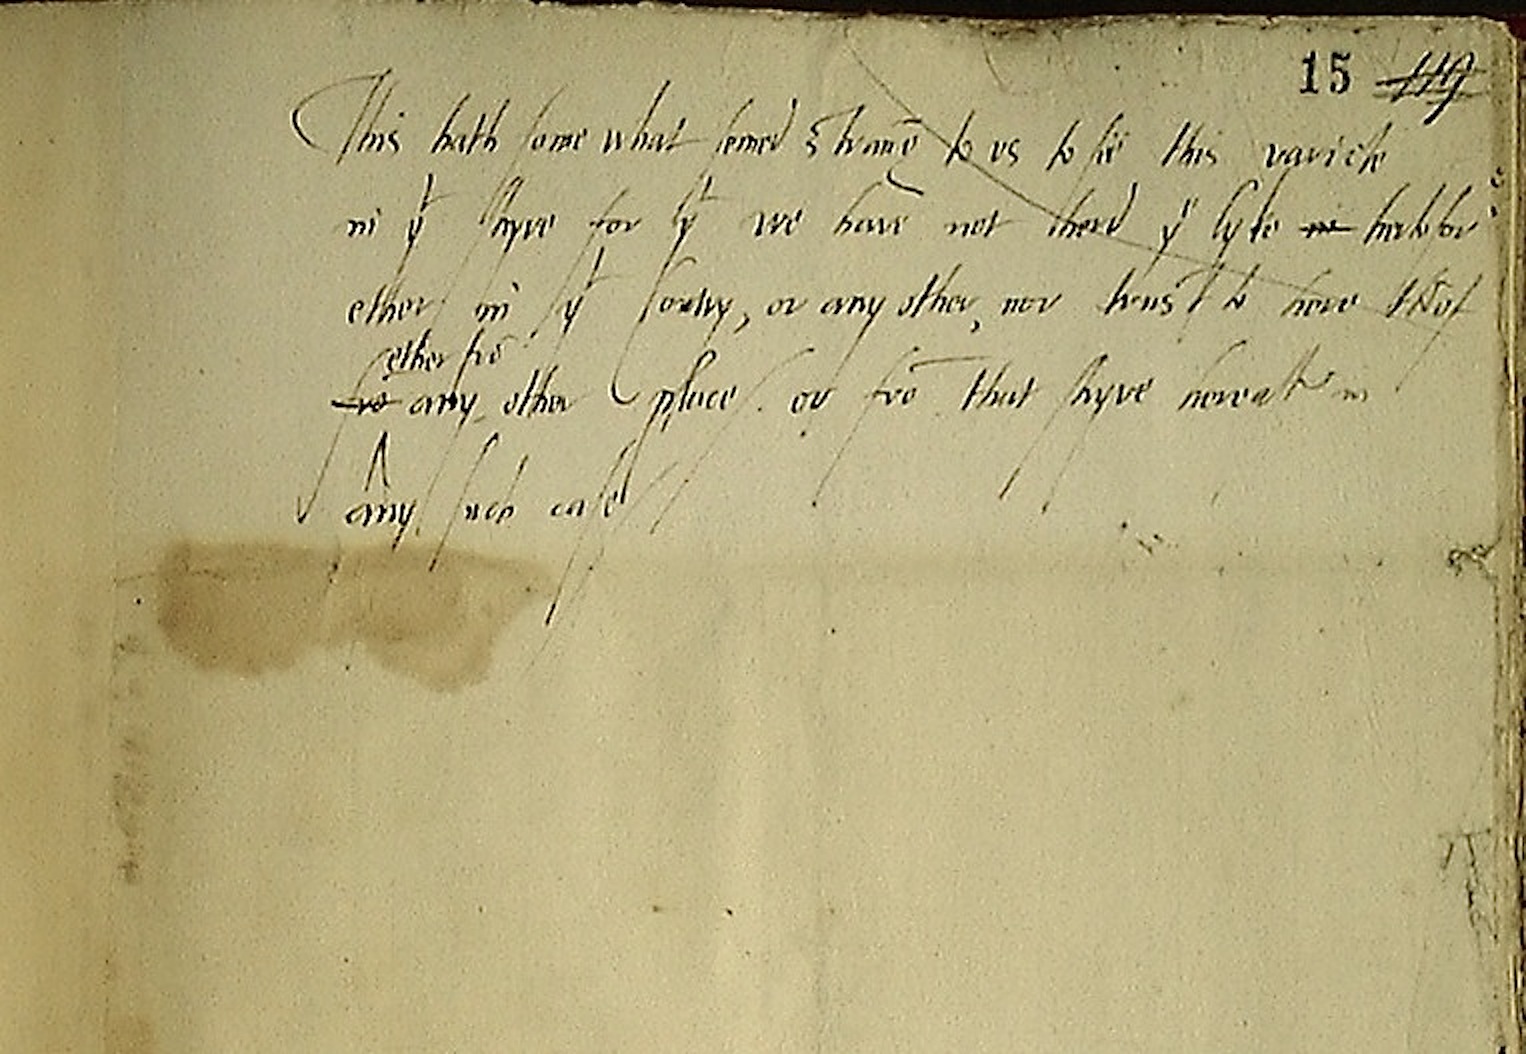 15 119
This hath some what semed strange to us to sē this variete
in yt shyre for yt we have not herd ye lyke in hertofor
ether in yt contry, or any other, nor trust to here therof
ether frō
frō any other place or frō that shyre hereaftr in
any such case